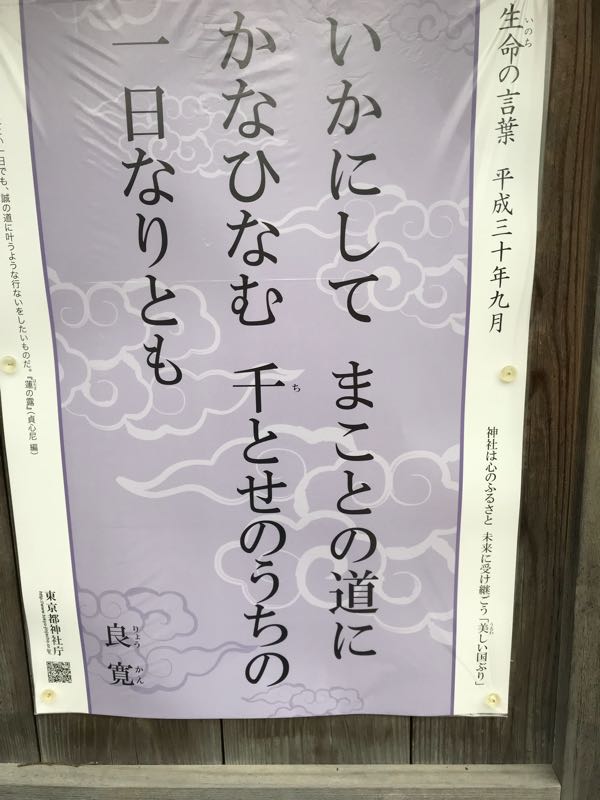 生命の言葉 平成三十年九月
いのち
神社は心のふるさと 未来に受け継ごう「美しい国ぶり」
いかにして まことの道に
かなひなむ 千とせのうちの
ち
一日なりとも
良寛
りょう かん
一日でも、誠の道に叶うような行ないをしたいものだ。『蓮の露』(貞心尼 編)
東京都神社庁